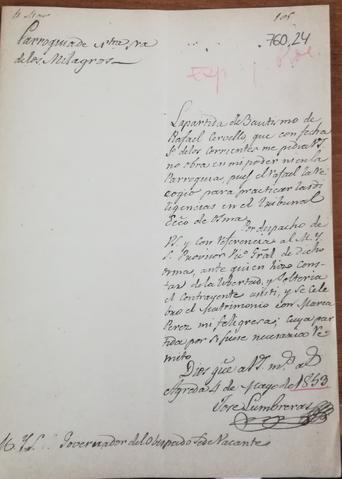 105
760,24
Parroquia de Ntra Sra
de los Milagros
La partida de Bautismo de
Rafael Cervello, que con fecha
1º de los corrientes me pidió V.S.
no obra en mi poder ni en la
Parroquia, pues el Rafael la re
cogio para practicar las di
ligencias en el Tribunal
Ecco de Osma.
Por despacho de
VS y con referencia al M. Y.
S. Provisor Vico Gral de dicho
Osma, ante quien hizo cons
tar la libertad, y solteria
el contrayente, y se cele
bro el matrimonio con Maria
Perez mi feligresa; cuya par
tida por si fuese necesaria re
mito.
Dios gue a V.S. ms as
Agreda 4 de Mayo de 1853
Jose Lumbreras
M. Y. S. Governador del Obispado Sede Vacante